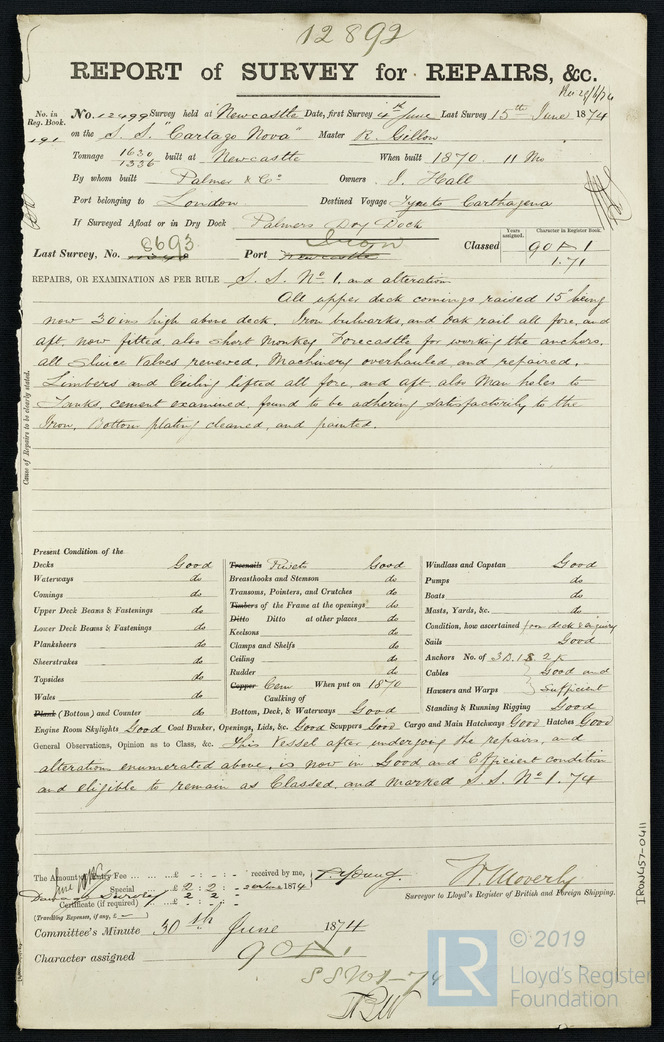 12892
REPORT of SURVEY for REPAIRS, &c.
No. in Reg. Book. No. 12499 Survey held at Newcastle Date, first Survey 4th June Last Survey 15th June 1874
191 on the S.S. "Cartago Nova" Master R. Gillon
Tonnage 1630 / 1336 built at Newcastle When built 1870. 11 Mo
By whom built Palmer & Co Owners J. Hall
Port belonging to London Destined Voyage Tyne to Carthagena
If Surveyed Afloat or in Dry Dock Palmers Dry Dock
Last Survey, No. 8693 Port Iron Newcastle Classed Years assigned. Character in Register Book. 90 A 1
1.71
REPAIRS, OR EXAMINATION AS PER RULE S. S. No 1, and alteration
All upper deck comings raised 15" being
now 30 ins high above deck. Iron bulwarks, and Oak rail all fore, and
aft now fitted, also short Monkey Forecastle for working the anchors,
all Sluice Valves renewed. Machinery overhauled and repaired.
Limbers and Ceiling lifted all fore, and aft, also Man holes to
Tanks, cement examined, found to be adhering satisfactorily to the
Iron, Bottom plating cleaned, and painted.
Cause of Repairs to be clearly stated.
Present Condition of the
Decks Good
Waterways do
Comings do
Upper Deck Beams & Fastenings do
Lower Deck Beams & Fastenings do
Planksheers do
Sheerstrakes do
Topsides do
Wales do
Plank (Bottom) and Counter do
Treenails Rivets Good
Breasthooks and Stemson do
Transoms, Pointers, and Crutches do
Timbers of the Frame at the openings do
Ditto Ditto at other places do
Keelsons do
Clamps and Shelfs do
Ceiling do
Rudder do
Copper Cem When put on 1870
Caulking of
Bottom, Deck, & Waterways Good
Windlass and Capstan Good
Pumps do
Boats do
Masts, Yards, &c. do
Condition, how ascertained from deck & inquiry
Sails Good
Anchors No. of 3 B. 1 S. 2 K
Cables Good and
Hawsers and Warps Sufficient
Standing & Running Rigging Good
Engine Room Skylights Good Coal Bunker, Openings, Lids, &c. Good Scuppers Good Cargo and Main Hatchways Good Hatches Good
General Observations, Opinion as to Class, &c. This Vessel after undergoing the repairs, and
alteration enumerated above, is now in Good and Efficient condition
and eligible to remain as Classed, and marked S. S. No 1. 74
The Amount Entry Fee ... £ : : received by me,
Special ... £ 2 : 2 : 20 June 1874 T. Young.
Damage Survey 2 : 2 :
Certificate (if required) ...
(Travelling Expenses, if any, £ )
W. Moverly
Surveyor to Lloyd's Register of British and Foreign Shipping.
Committee's Minute 30th June 1874
Character assigned 90 A 1
S S No 1-74
IRON457-0411
LR
© 2019
Lloyd's Register
Foundation